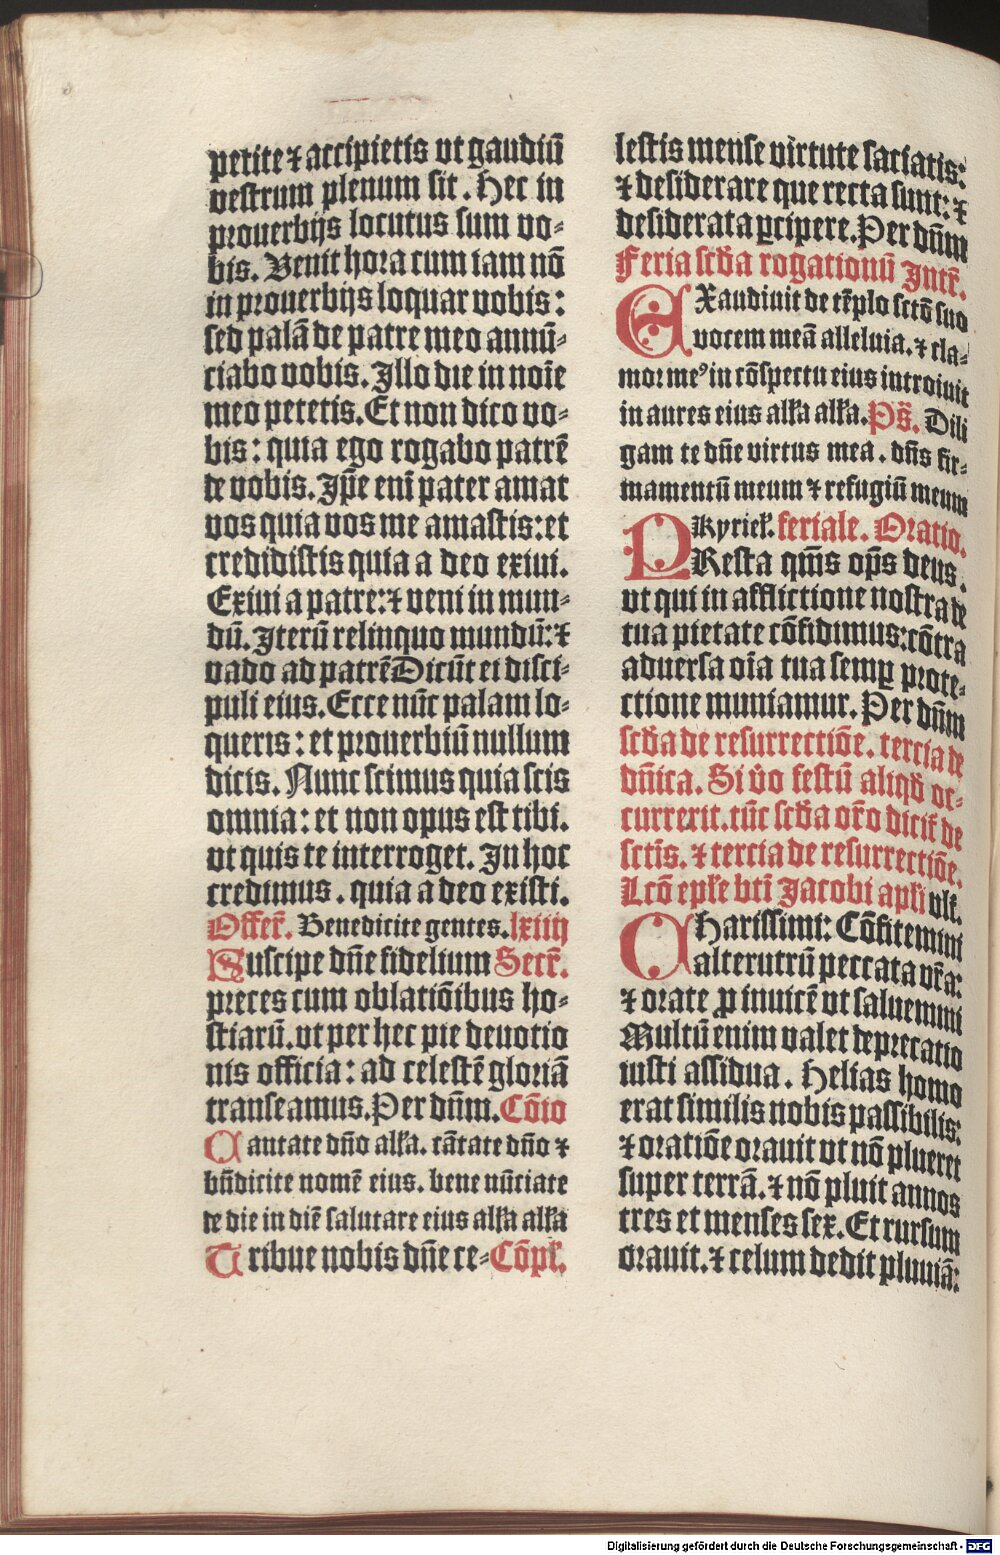 petite ⁊ accipietis vt gaudiū
vestrum plenum sit. Hec in
prouerbijs locutus sum vo-
bis. Venit hora cum iam nō
in prouerbijs loquar vobis:
sed palā de patre meo annū-
ciabo vobis. Illo die in noīe
meo petetis. Et non dico vo-
bis: quia ego rogabo patrē
de vobis. Ip̄e enī pater amat
vos quia vos me amastis: et
credidistis quia a deo exiui.
Exiui a patre: ⁊ veni in mun-
dū. Iterū relinquo mundū: ⁊
vado ad patrē Dicūt ei disci-
puli eius. Ecce nūc palam lo-
queris: et prouerbiū nullum
dicis. Nunc scimus quia scis
omnia: et non opus est tibi.
vt quis te interroget. In hoc
credimus. quia a deo existi.
Offer̄. Benedicite gentes. lxiiij
Suscipe dn̄e fidelium Secr̄.
preces cum oblatiōibus ho-
stiarū. vt per hec pie deuotio
nis officia: ad celestē gloriā
transeamus. Per dn̄m. Cōio
Cantate dn̄o alla. cātate dn̄o ⁊
bn̄dicite nomē eius. bene nūciate
de die in diē salutare eius alla alla
Tribue nobis dn̄e ce- Cōpl.
lestis mense virtute saciatis:
⁊ desiderare que recta sunt: ⁊
desiderata ꝑcipere. Per dn̄m
Feria scd̄a rogationū Intr̄.
EXaudiuit de tēplo sctō suo
vocem meā alleluia. ⁊ cla-
mor meꝰ in cōspectu eius introiuit
in aures eius alla alla. Ps̄. Dili
gam te dn̄e virtus mea. dn̄s fir-
mamentū meum ⁊ refugiū meum
Kyriel. feriale. Oratio.
PResta qm̄s op̄s deus.
vt qui in afflictione nostra de
tua pietate cōfidimus: cōtra
aduersa oīa tua semꝑ prote-
ctione muniamur. Per dn̄m
scd̄a de resurrectiōe. tercia de
dn̄ica. Si v̄o festū aliqd̄ oc-
currerit. tūc scd̄a or̄o dicit̄ de
sctīs. ⁊ tercia de resurrectiōe.
Lcō ep̄le bti Jacobi apli vlt.
CHarissimi: Cōfitemini
alterutrū peccata vr̄a:
⁊ orate ꝓ inuicē vt saluemini
Multū enim valet deprecatio
iusti assidua. Helias homo
erat similis nobis passibilis:
⁊ oratiōe orauit vt nō plueret
super terrā. ⁊ nō pluit annos
tres et menses sex. Et rursum
orauit. ⁊ celum dedit pluuiā:
Digitalisierung gefördert durch die Deutsche Forschungsgemeinschaft - DFG